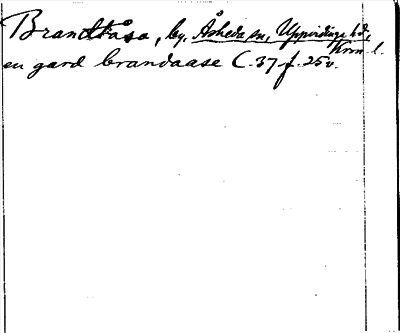 Brandtåsa, by, Åsheda sn, Uppvidinge hd,
Kron. l.
en gard brandaase C. 37 f. 25v.